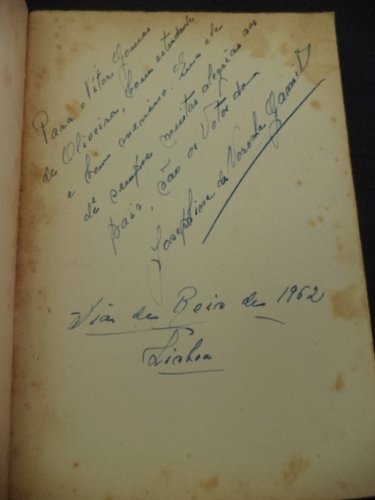 Para Vitor Gomes
de Oliveira, bom estudante
e bom menino. Que ele
dê sempre muitas alegrias aos
pais, são os votos da
Josephine de Noronha Gamito
Dia de Reis de 1962
Lisboa